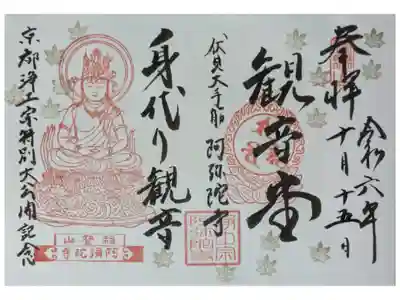 奉拝
令和六年
十月十五日
観音堂
伏見大手筋 阿弥陀寺
身代り観音
京都浄土宗特別大公開記念
阿彌陀寺